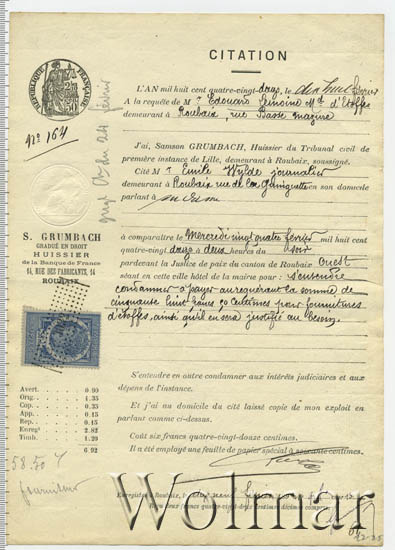 CITATION
RÉPUBLIQUE FRANÇAISE
L'AN mil huit cent quatre-vingt-douze, le dix huit février
A la requête de M Edouard Lemoine Md d'étoffes
demeurant à Roubaix, rue Basse Mazure
No 164
J'ai, Samson GRUMBACH, Huissier du Tribunal civil de
première instance de Lille, demeurant à Roubaix, soussigné.
Cité M Emile Wylde journalier
demeurant à Roubaix rue de la Guinguette en son domicile
parlant à
S. GRUMBACH
GRADUÉ EN DROIT
HUISSIER
de la Banque de France
14, RUE DES FABRICANTS, 14
ROUBAIX
à comparaître le Mercredi vingt quatre février mil huit cent
quatre-vingt douze à deux heures du soir
pardevant la Justice de paix du canton de Roubaix Ouest
séant en cette ville hôtel de la mairie pour : s'entendre
condamner à payer au requérant la somme de
cinquante huit francs 50 centimes pour fournitures
d'étoffes, ainsi qu'il en sera justifié au besoin.
S'entendre en outre condamner aux intérêts judiciaires et aux
dépens de l'instance.
Et j'ai au domicile du cité laissé copie de mon exploit en
parlant comme ci-dessus.
Coût six francs quatre-vingt-douze centimes.
Il a été employé une feuille de papier spécial à soixante centimes.
Avert. 0.90
Orig. 1.35
Cop. 0.35
App. 0.15
Rep. 0.15
Enregt 2.82
Timb. 1.20
6.92
58.50
fourniteur
Enregistré à Roubaix, le
Wolmar